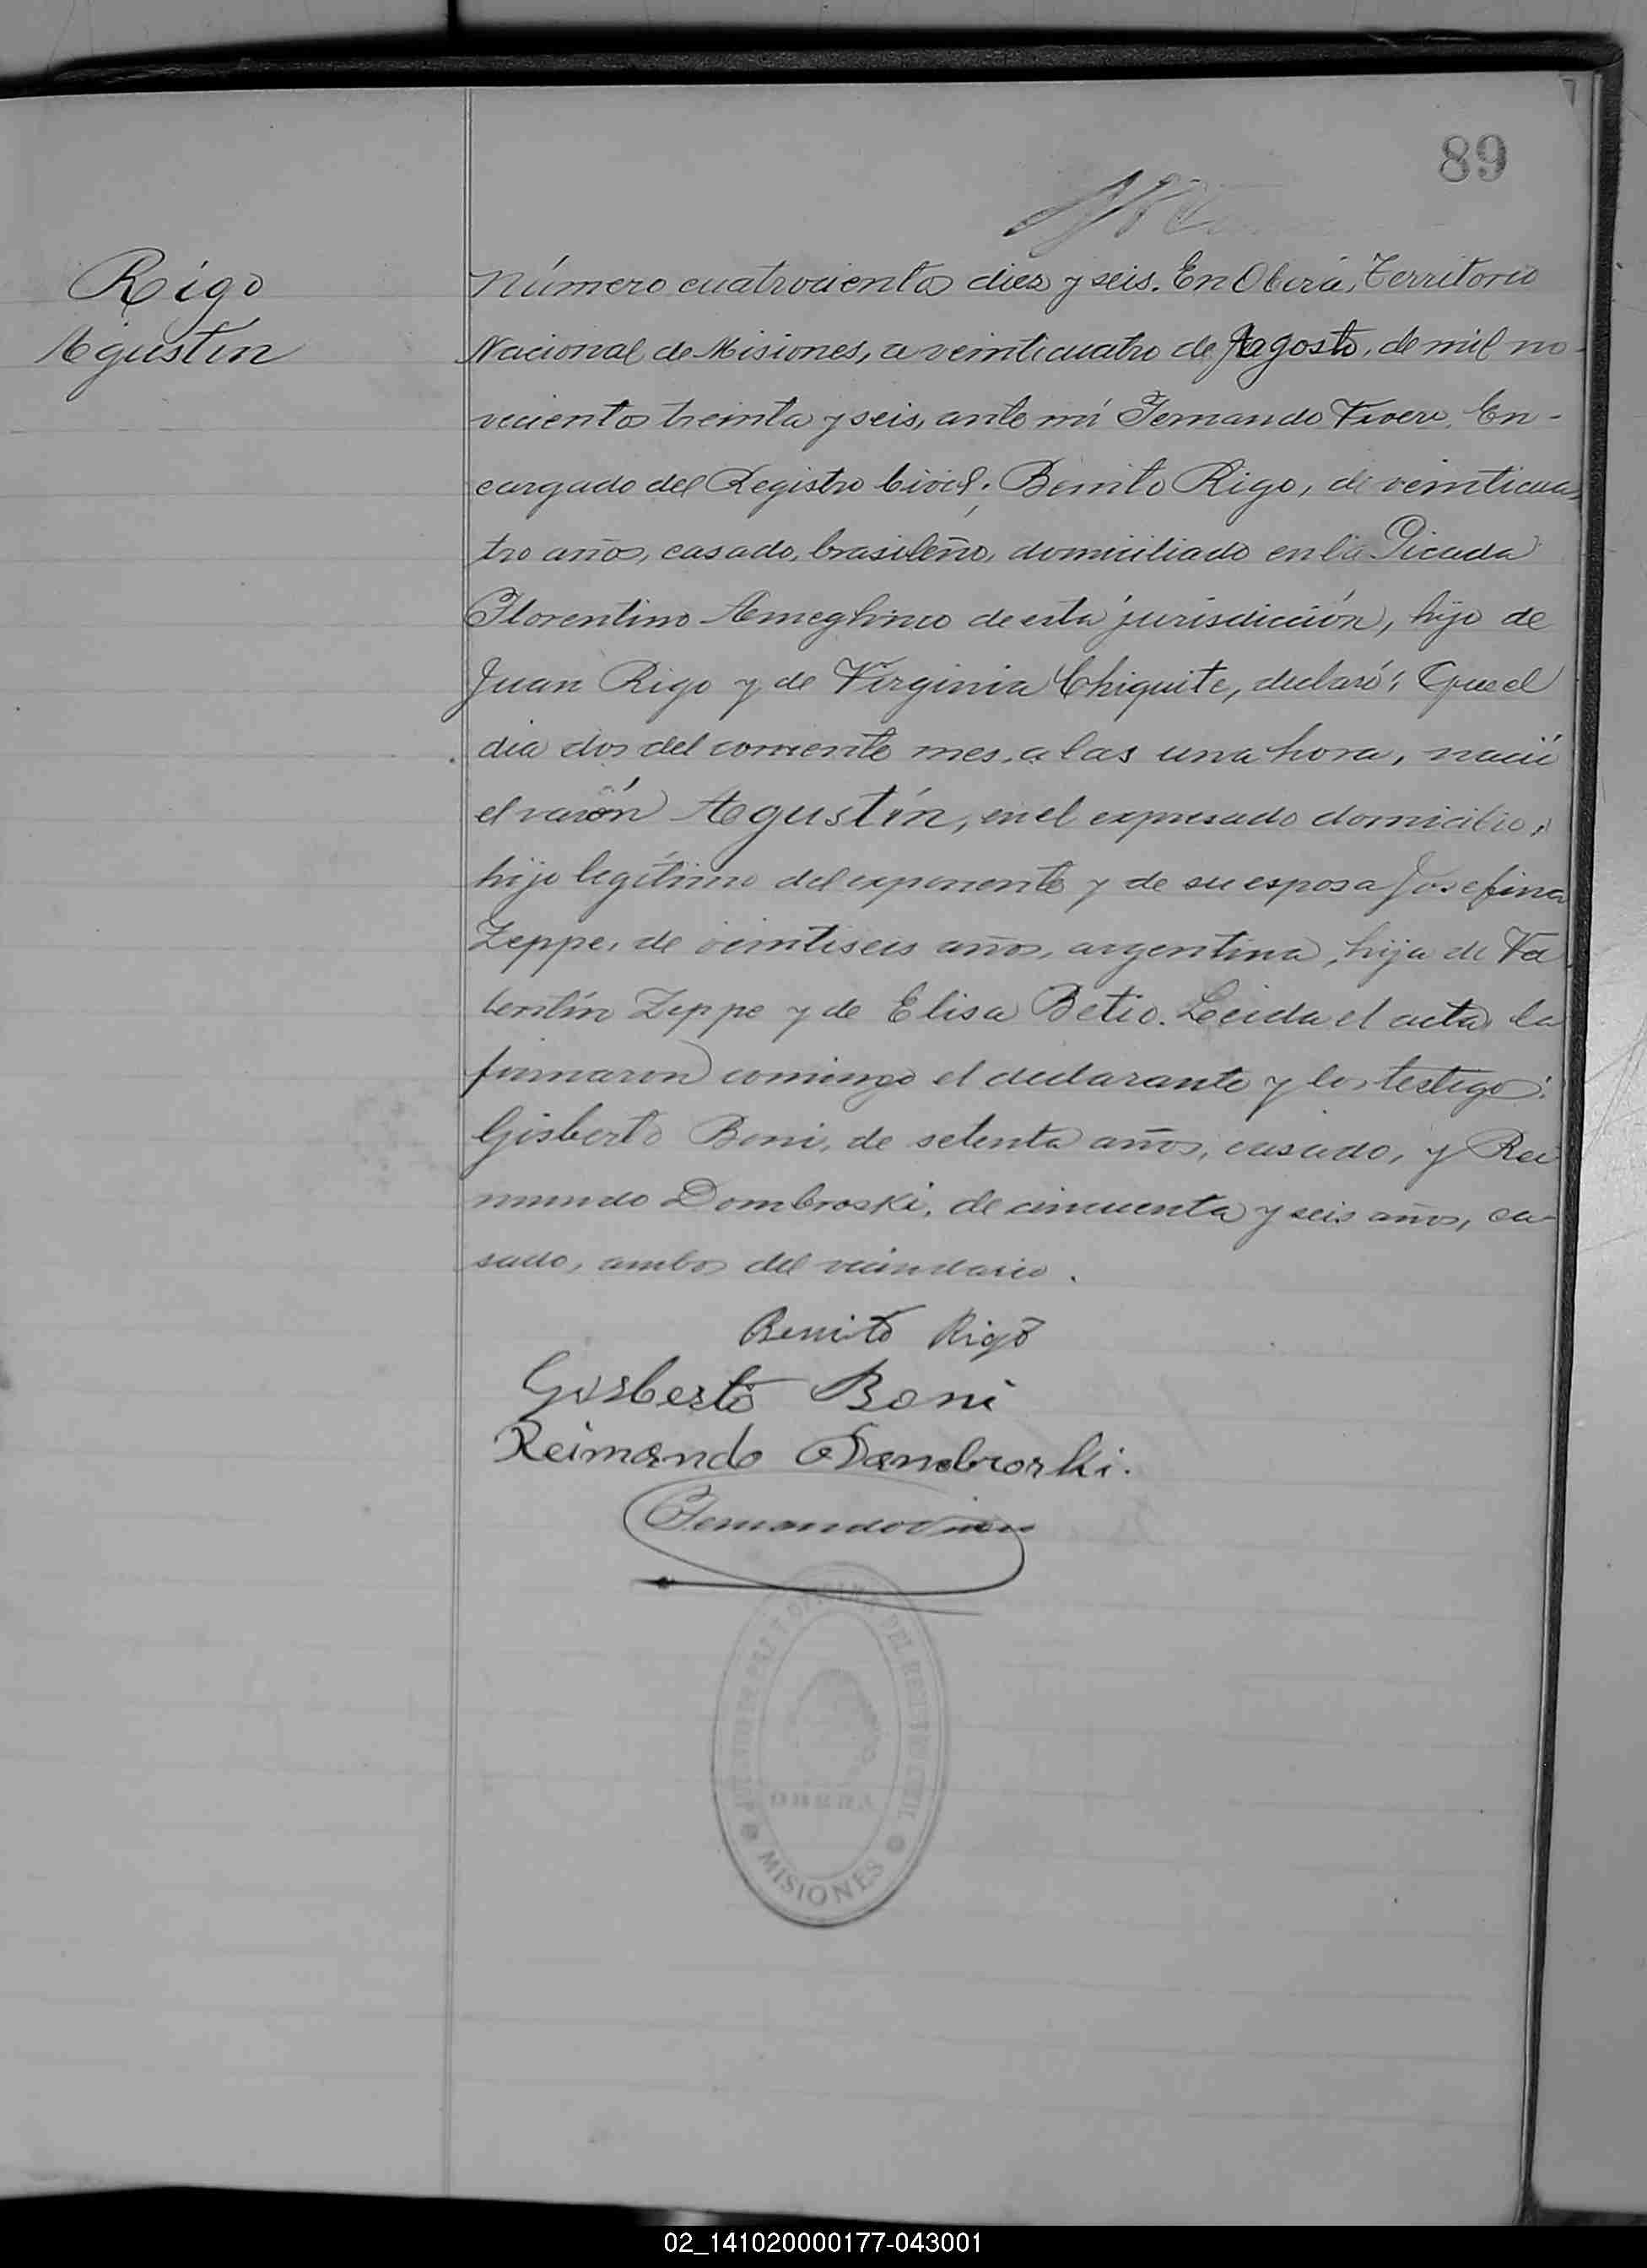 89
Rigo
Agustín
Número cuatrocientos diez y seis. En Oberá, Territorio
Nacional de Misiones, a veinticuatro de Agosto, de mil no-
vecientos treinta y seis, ante mí Fernando Vivero, En-
cargado del Registro Civil; Benito Rigo, de veinticua-
tro años, casado, brasileño, domiciliado en la Picada
Florentino Ameghino de esta jurisdicción, hijo de
Juan Rigo y de Virginia Chiquite, declaró: Que el
dia dos del corriente mes, a las una hora, nació
el varón Agustín, en el expresado domicilio,
hijo legítimo del exponente y de su esposa Josefina
Zeppe, de veintiseis años, argentina, hija de Va-
lentín Zeppe y de Elisa Betio. Leida el acta, la
firmaron conmigo el declarante y los testigos:
Gisberto Boni, de setenta años, casado, y Rei
mundo Dombroski, de cincuenta y seis años, ca-
sado, ambos del vecindario.
Benito Rigo
Gisberto Boni
Reimondo Dambroski.
Fernando Vivero
OBERA
MISIONES
02_141020000177-043001